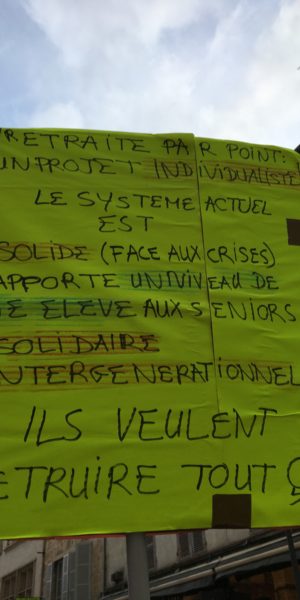 RETRAITE PAR POINT:
UN PROJET INDIVIDUALISTE
LE SYSTEME ACTUEL
EST
SOLIDE (FACE AUX CRISES)
APPORTE UN NIVEAU DE
IE ELEVE AUX SENIORS
SOLIDAIRE
NTERGENERATIONNEL
ILS VEULENT
ETRUIRE TOUT Ç